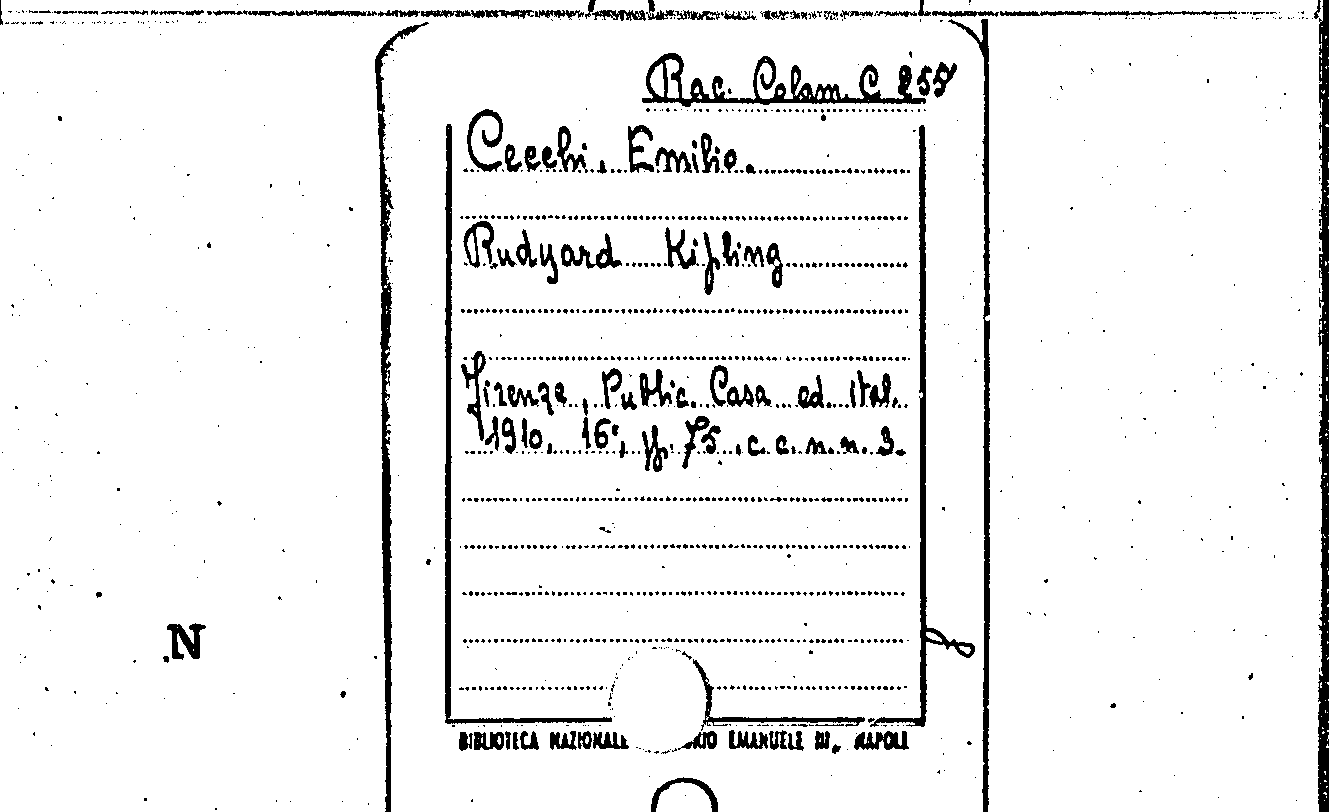 Rac. Colam. C 255
Cecchi, Emilio.
Rudyard Kipling
Firenze, Public. Casa ed. ital.
1910, 16°, pp. 75 .c.c.n.n. 3.
N
BIBLIOTECA NAZIONALE EMANUELE III, NAPOLI